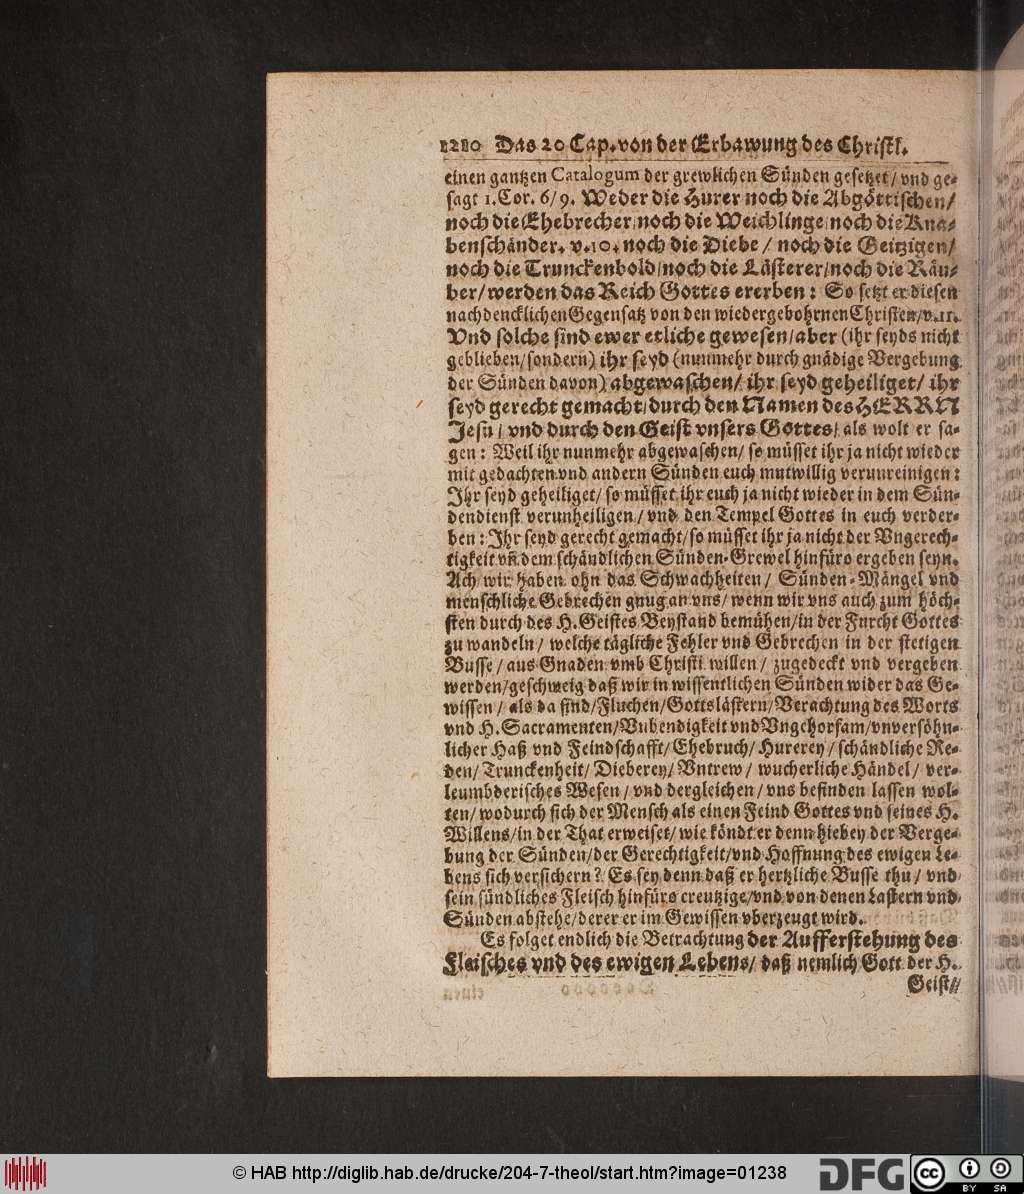 1210 Das 20 Cap. von der Erbawung des Christl.
einen gantzen Catalogum der grewlichen Sünden gesetzet / vnd ge-
sagt 1. Cor. 6/9. Weder die Hurer noch die Abgöttischen /
noch die Ehebrecher / noch die Weichlinge / noch die Kna-
benschänder. v. 10. noch die Diebe / noch die Geitzigen /
noch die Trunckenbold / noch die Lästerer / noch die Räu-
ber / werden das Reich Gottes ererben: So setzt er diesen
nachdencklichen Gegensatz von den wiedergebohrnen Christen / v. 11.
Vnd solche sind ewer etliche gewesen / aber (ihr seyds nicht
geblieben / sondern) ihr seyd (nunmehr durch gnädige Vergebung
der Sünden davon) abgewaschen / ihr seyd geheiliget / ihr
seyd gerecht gemacht / durch den Namen des HERRN
Jesu / vnd durch den Geist vnsers Gottes / als wolt er sa-
gen: Weil ihr nunmehr abgewaschen / so müsset ihr ja nicht wieder
mit gedachten vnd andern Sünden euch mutwillig verunreinigen:
Ihr seyd geheiliget / so müsset ihr euch ja nicht wieder in dem Sün-
dendienst verunheiligen / vnd den Tempel Gottes in euch verder-
ben: Ihr seyd gerecht gemacht / so müsset ihr ja nicht der Vngerech-
tigkeit vñ dem schändlichen Sünden-Grewel hinfüro ergeben seyn.
Ach wir haben ohn das Schwachheiten / Sünden-Mängel vnd
menschliche Gebrechen gnug an vns / wenn wir vns auch zum höch-
sten durch des H. Geistes Beystand bemühen / in der Furcht Gottes
zu wandeln / welche tägliche Fehler vnd Gebrechen in der stetigen
Busse / aus Gnaden vmb Christi willen / zugedeckt vnd vergeben
werden / geschweig daß wir in wissentlichen Sünden wider das Ge-
wissen / als da sind / Fluchen / Gottslästern / Verachtung des Worts
vnd H. Sacramenten / Bubendigkeit vnd Vngehorsam / vnversöhn-
licher Haß vnd Feindschafft / Ehebruch / Hurerey / schändliche Re-
den / Trunckenheit / Dieberey / Vntrew / wucherliche Händel / ver-
leumbderisches Wesen / vnd dergleichen / vns befinden lassen wol-
ten / wodurch sich der Mensch als einen Feind Gottes vnd seines H.
Willens / in der That erweiset / wie köndt er denn hiebey der Verge-
bung der Sünden / der Gerechtigkeit / vnd Hoffnung des ewigen Le-
bens sich versichern? Es sey denn daß er hertzliche Busse thu / vnd
sein sündliches Fleisch hinfüro creutzige / vnd von denen Lastern vnd
Sünden abstehe / derer er im Gewissen vberzeugt wird.
Es folget endlich die Betrachtung der Aufferstehung des
Fleisches vnd des ewigen Lebens / daß nemlich Gott der H.
Geist //
© HAB http://diglib.hab.de/drucke/204-7-theol/start.htm?image=01238
DFG
cc BY SA